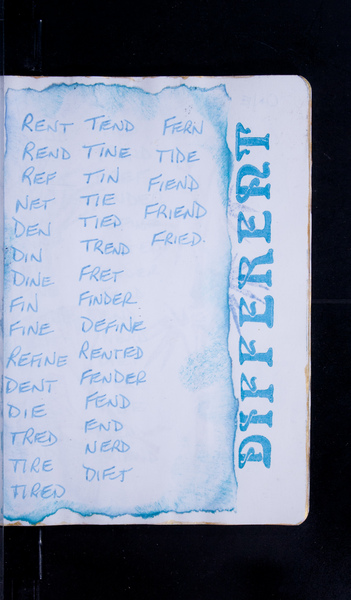 RENT
REND
REF
NET
DEN
DIN
DINE
FIN
FINE
REFINE
DENT
DIE
TRED
TIRE
TIRED
TEND
TINE
TIN
TIE
TIED
TREND
FRET
FINDER
DEFINE
RENTED
FENDER
FEND
END
NERD
DIET
FERN
TIDE
FIEND
FRIEND
FRIED.
DIFFERENT